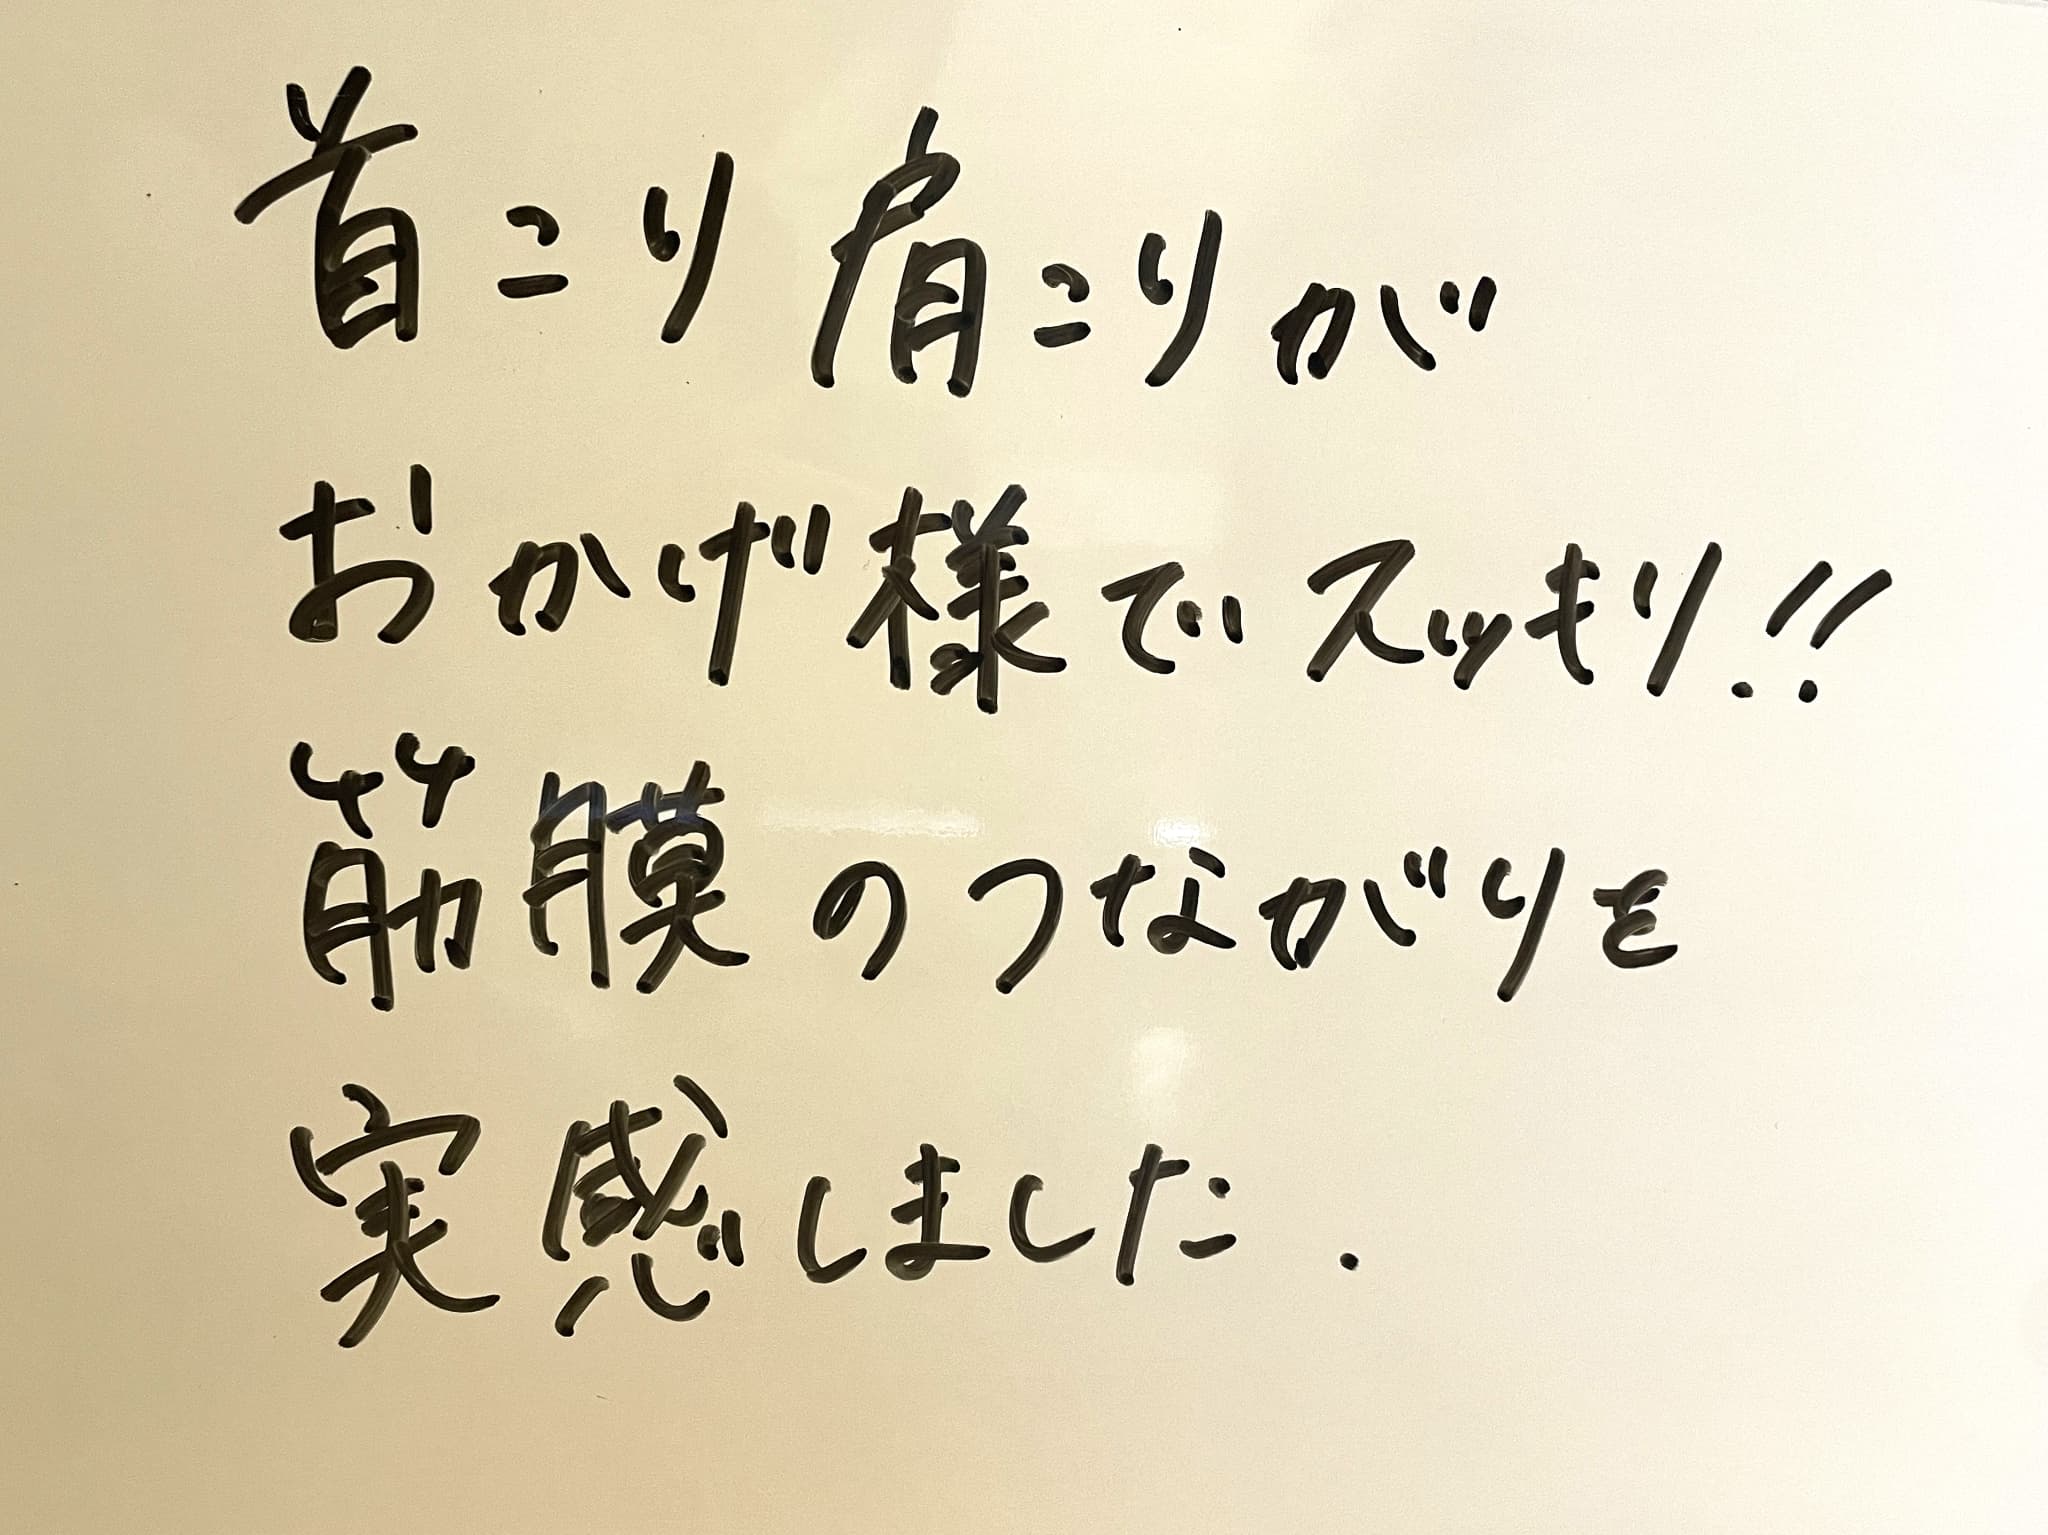 首こり肩こりが
おかげ様でスッキリ!!
筋膜のつながりを
実感しました.